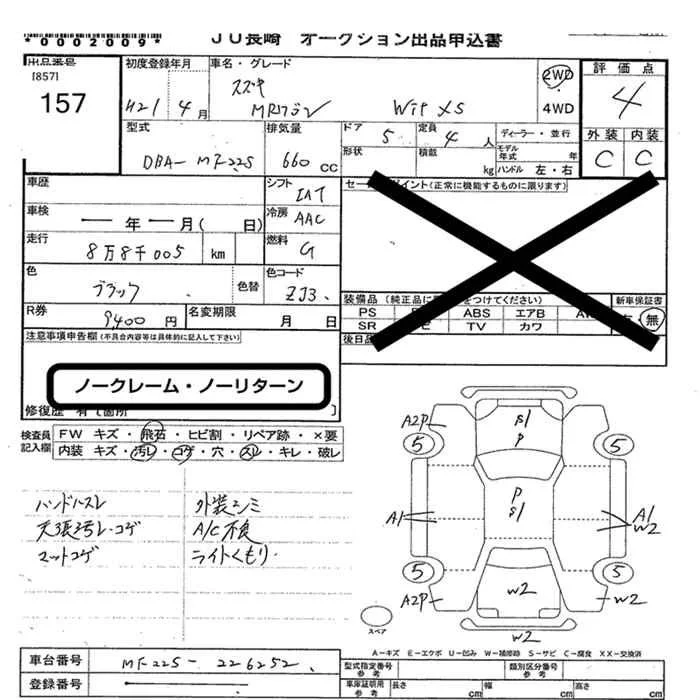 *0002009* JU長崎 オークション出品申込書
出品番号 初度登録年月 車名・グレード 評価点
[857] スズキ 2WD 4
157 H21年4月 MRワゴン Wit XS 4WD
型式 排気量 ドア 5 定員 4人 ディーラー・並行 外装 内装
DBA-MF22S 660cc 形状 積載 kg モデル年式 年 ハンドル 左・右 C C
車歴 シフト IAT
車検 ー年ー月(日) 冷房 AAC
走行 8万8千005 km 燃料 G
色 ブラック 色替 色コード ZJ3
装備品 新車保証書
PS ABS エアB 無
SR TV カワ
R券 9400円 名変期限 月 日
注意事項申告欄(不具合内容等は具体的に記入して下さい) 後日品
ノークレーム・ノーリターン
検査員記入欄 FW キズ・飛石・ヒビ割・リペア跡・×要
内装 キズ・汚レ・コゲ・穴・スレ・キレ・破レ
ハンドルスレ 外装シミ
天張汚レ・コゲ A/C不良
マットコゲ ライトくもり
A2P S1 P
5 5
P S1
A1 A1 W2
5 5
A2P W2 W2
W2
スペア
A-キズ E-エクボ U-凹み W-補修跡 S-サビ C-腐食 XX-交換済
車台番号 MF22S-226252 型式指定番号 参考 類別区分番号 参考
登録番号 車庫証明用 参考 長さ cm 幅 cm 高さ cm